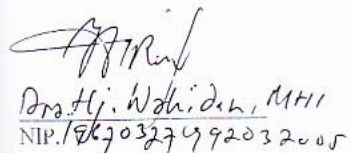 Dra. Hj. Wahidah, MHI
NIP. 196703271992032005